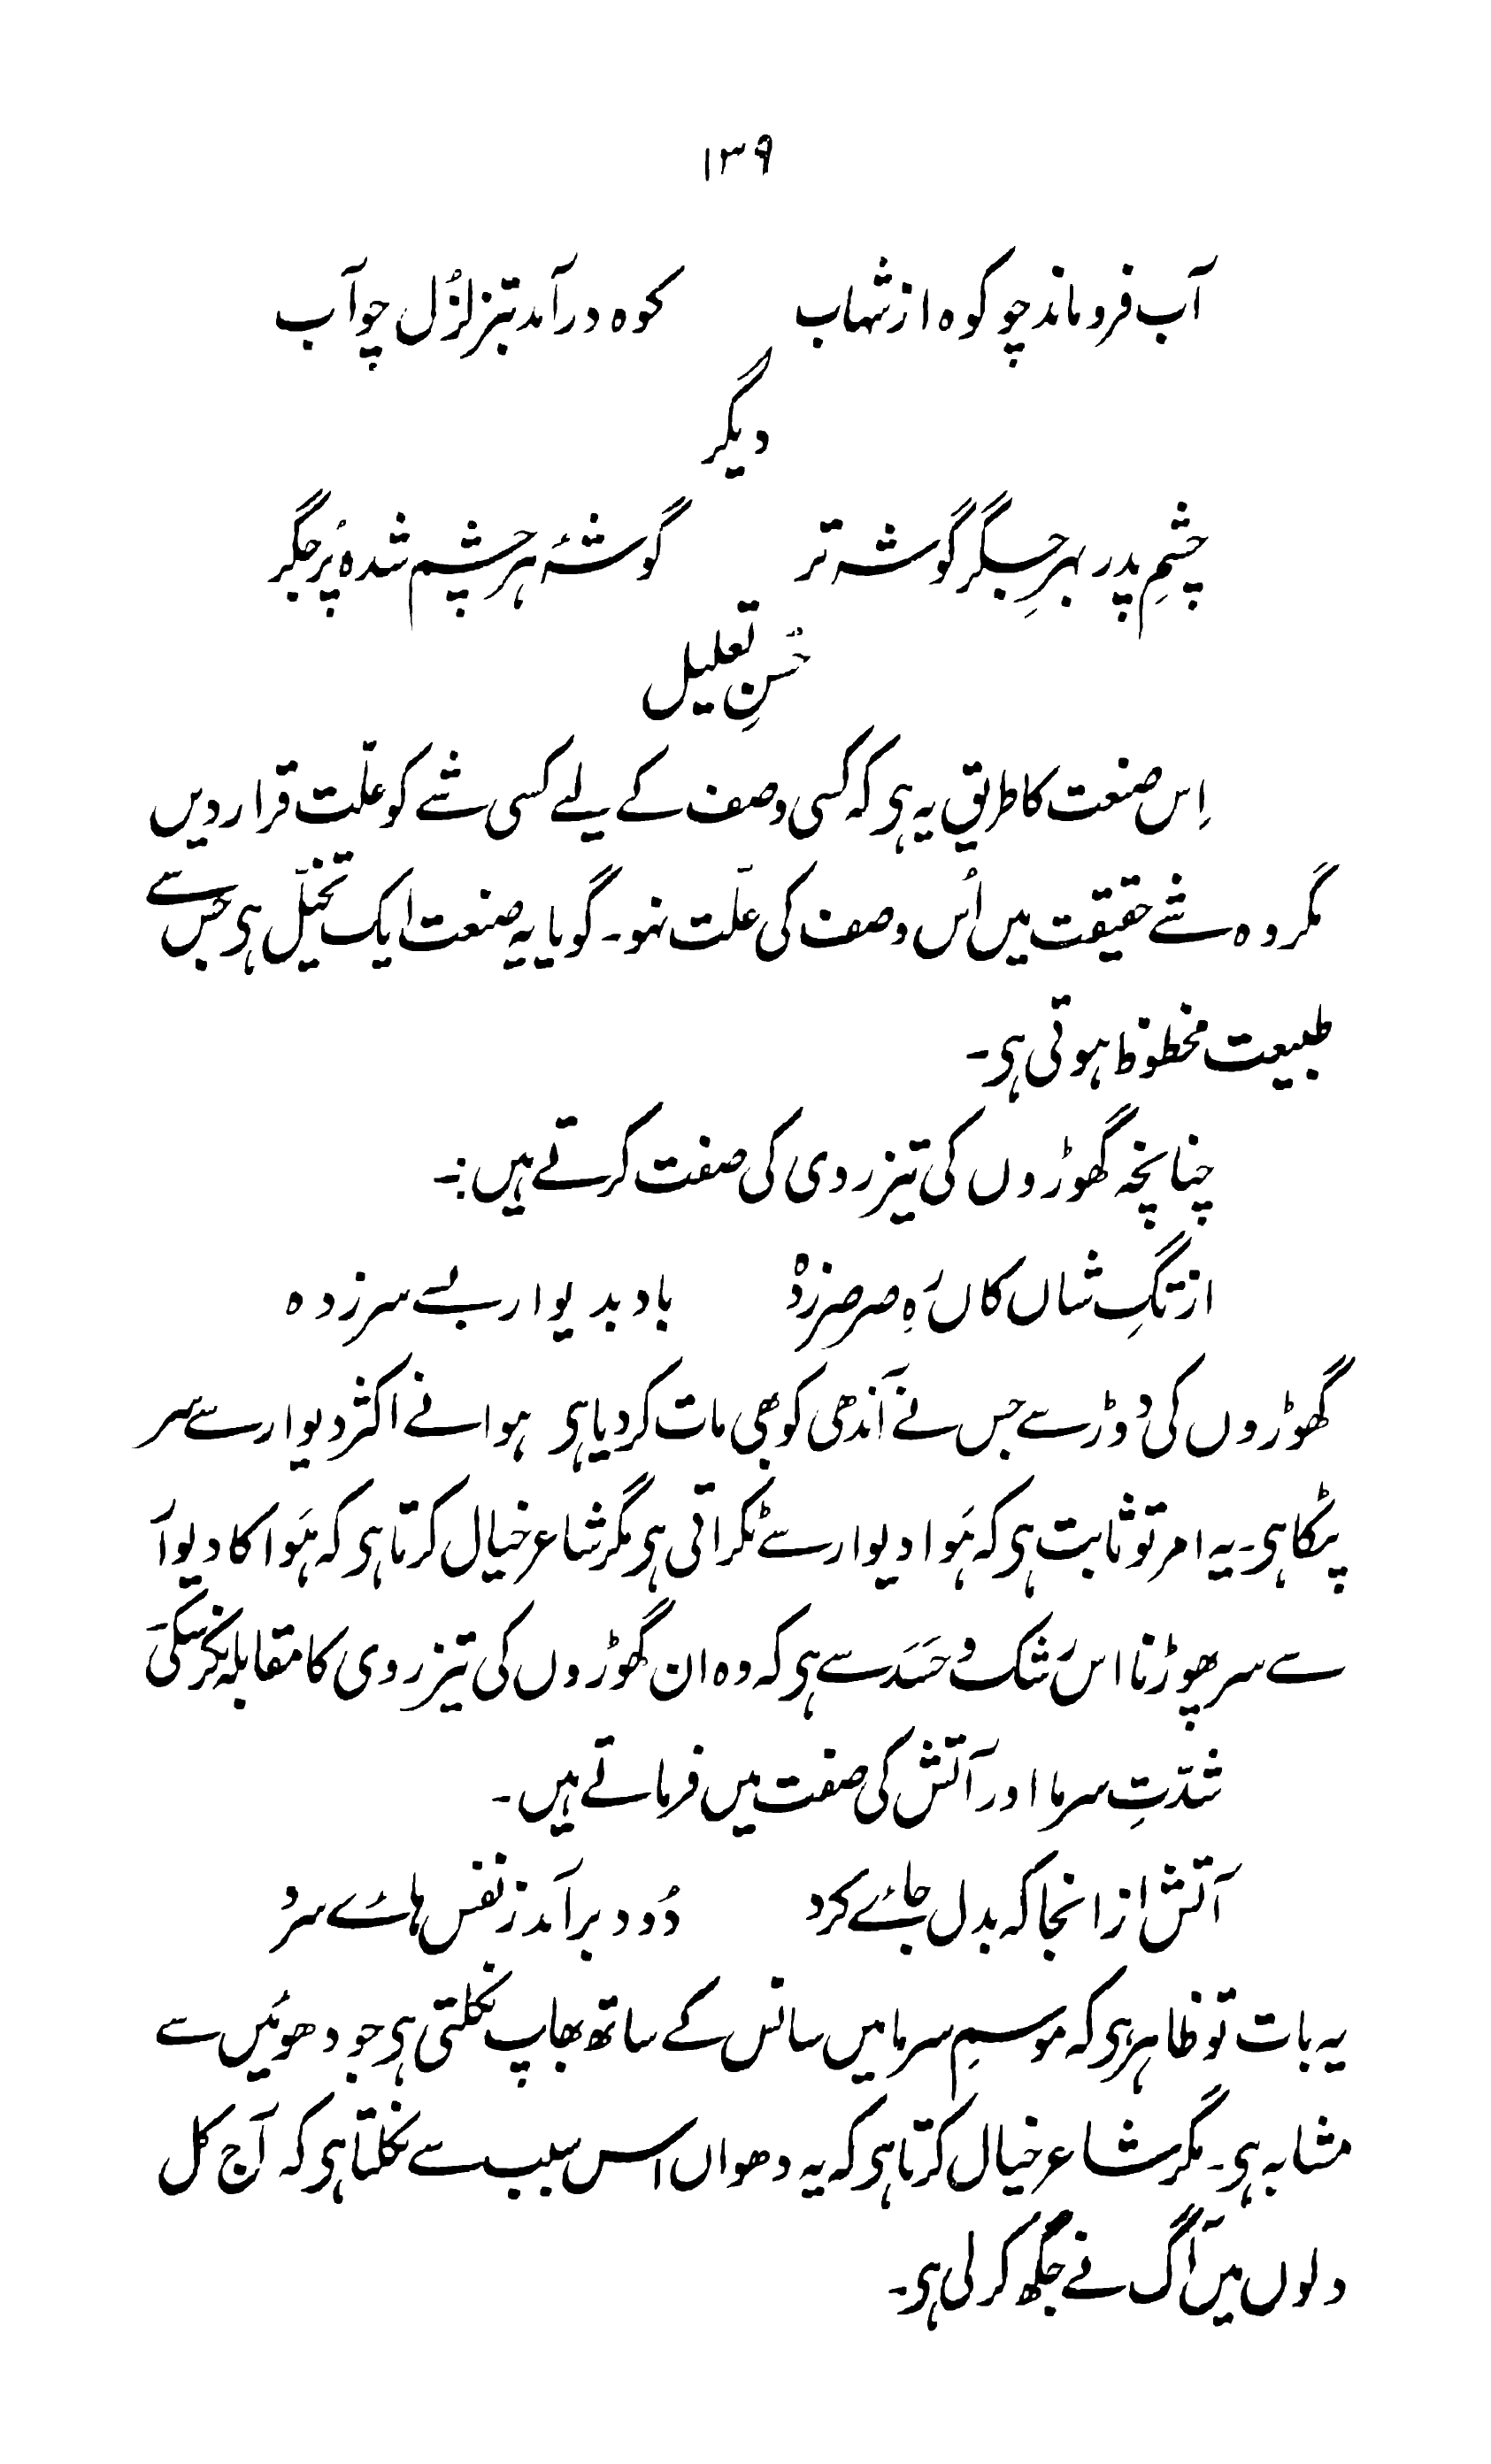 ۱۳۹
آب فروماند چو کوہ از شہاب کوہ درآمد بتزلزُل چو آب
دیگر
چشمِ پدر بہرِ جگر گوشہ تر گوشۂ ہر چشم شدہ پُر جگر
حُسنِ تعلیل
اِس صنعت کا طریق یہ ہی کہ کسی وصف کے لیے کسی شے کو علّت قرار دیں
مگر وہ شے حقیقت میں اُس وصف کی علّت نہو۔ گویا یہ صنعت ایک تخیّل ہی جس سے
طبیعت محظوظ ہوتی ہی۔
چنانچہ گھوڑوں کی تیز روی کی صفت کرتے ہیں:۔
از تگِ شاں کاں رَہِ صرصر زدہ باد بدیوار بسے سر زدہ
گھوڑوں کی دَوڑ سے جس نے آندھی کو بھی مات کر دیا ہی ہوا نے اکثر دیوار سے سر
پٹکا ہی۔ یہ امر تو ثابت ہی کہ ہَوا دیوار سے ٹکراتی ہی مگر شاعر خیال کرتا ہی کہ ہَوا کا دیوار
سے سر پھوڑنا اس رشک و حَسَد سے ہی کہ وہ ان گھوڑوں کی تیز روی کا مقابلہ نکر سکی
شدّتِ سرما اور آتش کی صفت میں فرماتے ہیں۔
آتش ازانجا کہ بدل جائے کرد دُود برآمد ز نفس ہائے سرد
یہ بات تو ظاہر ہی کہ موسمِ سرما میں سانس کے ساتھ بھاپ نکلتی ہی جو دھوئیں سے
مشابہ ہی۔ مگر شاعر خیال کرتا ہی کہ یہ دھواں اس سبب سے نکلتا ہی کہ آج کل
دلوں میں آگ نے جگھ کر لی ہی۔